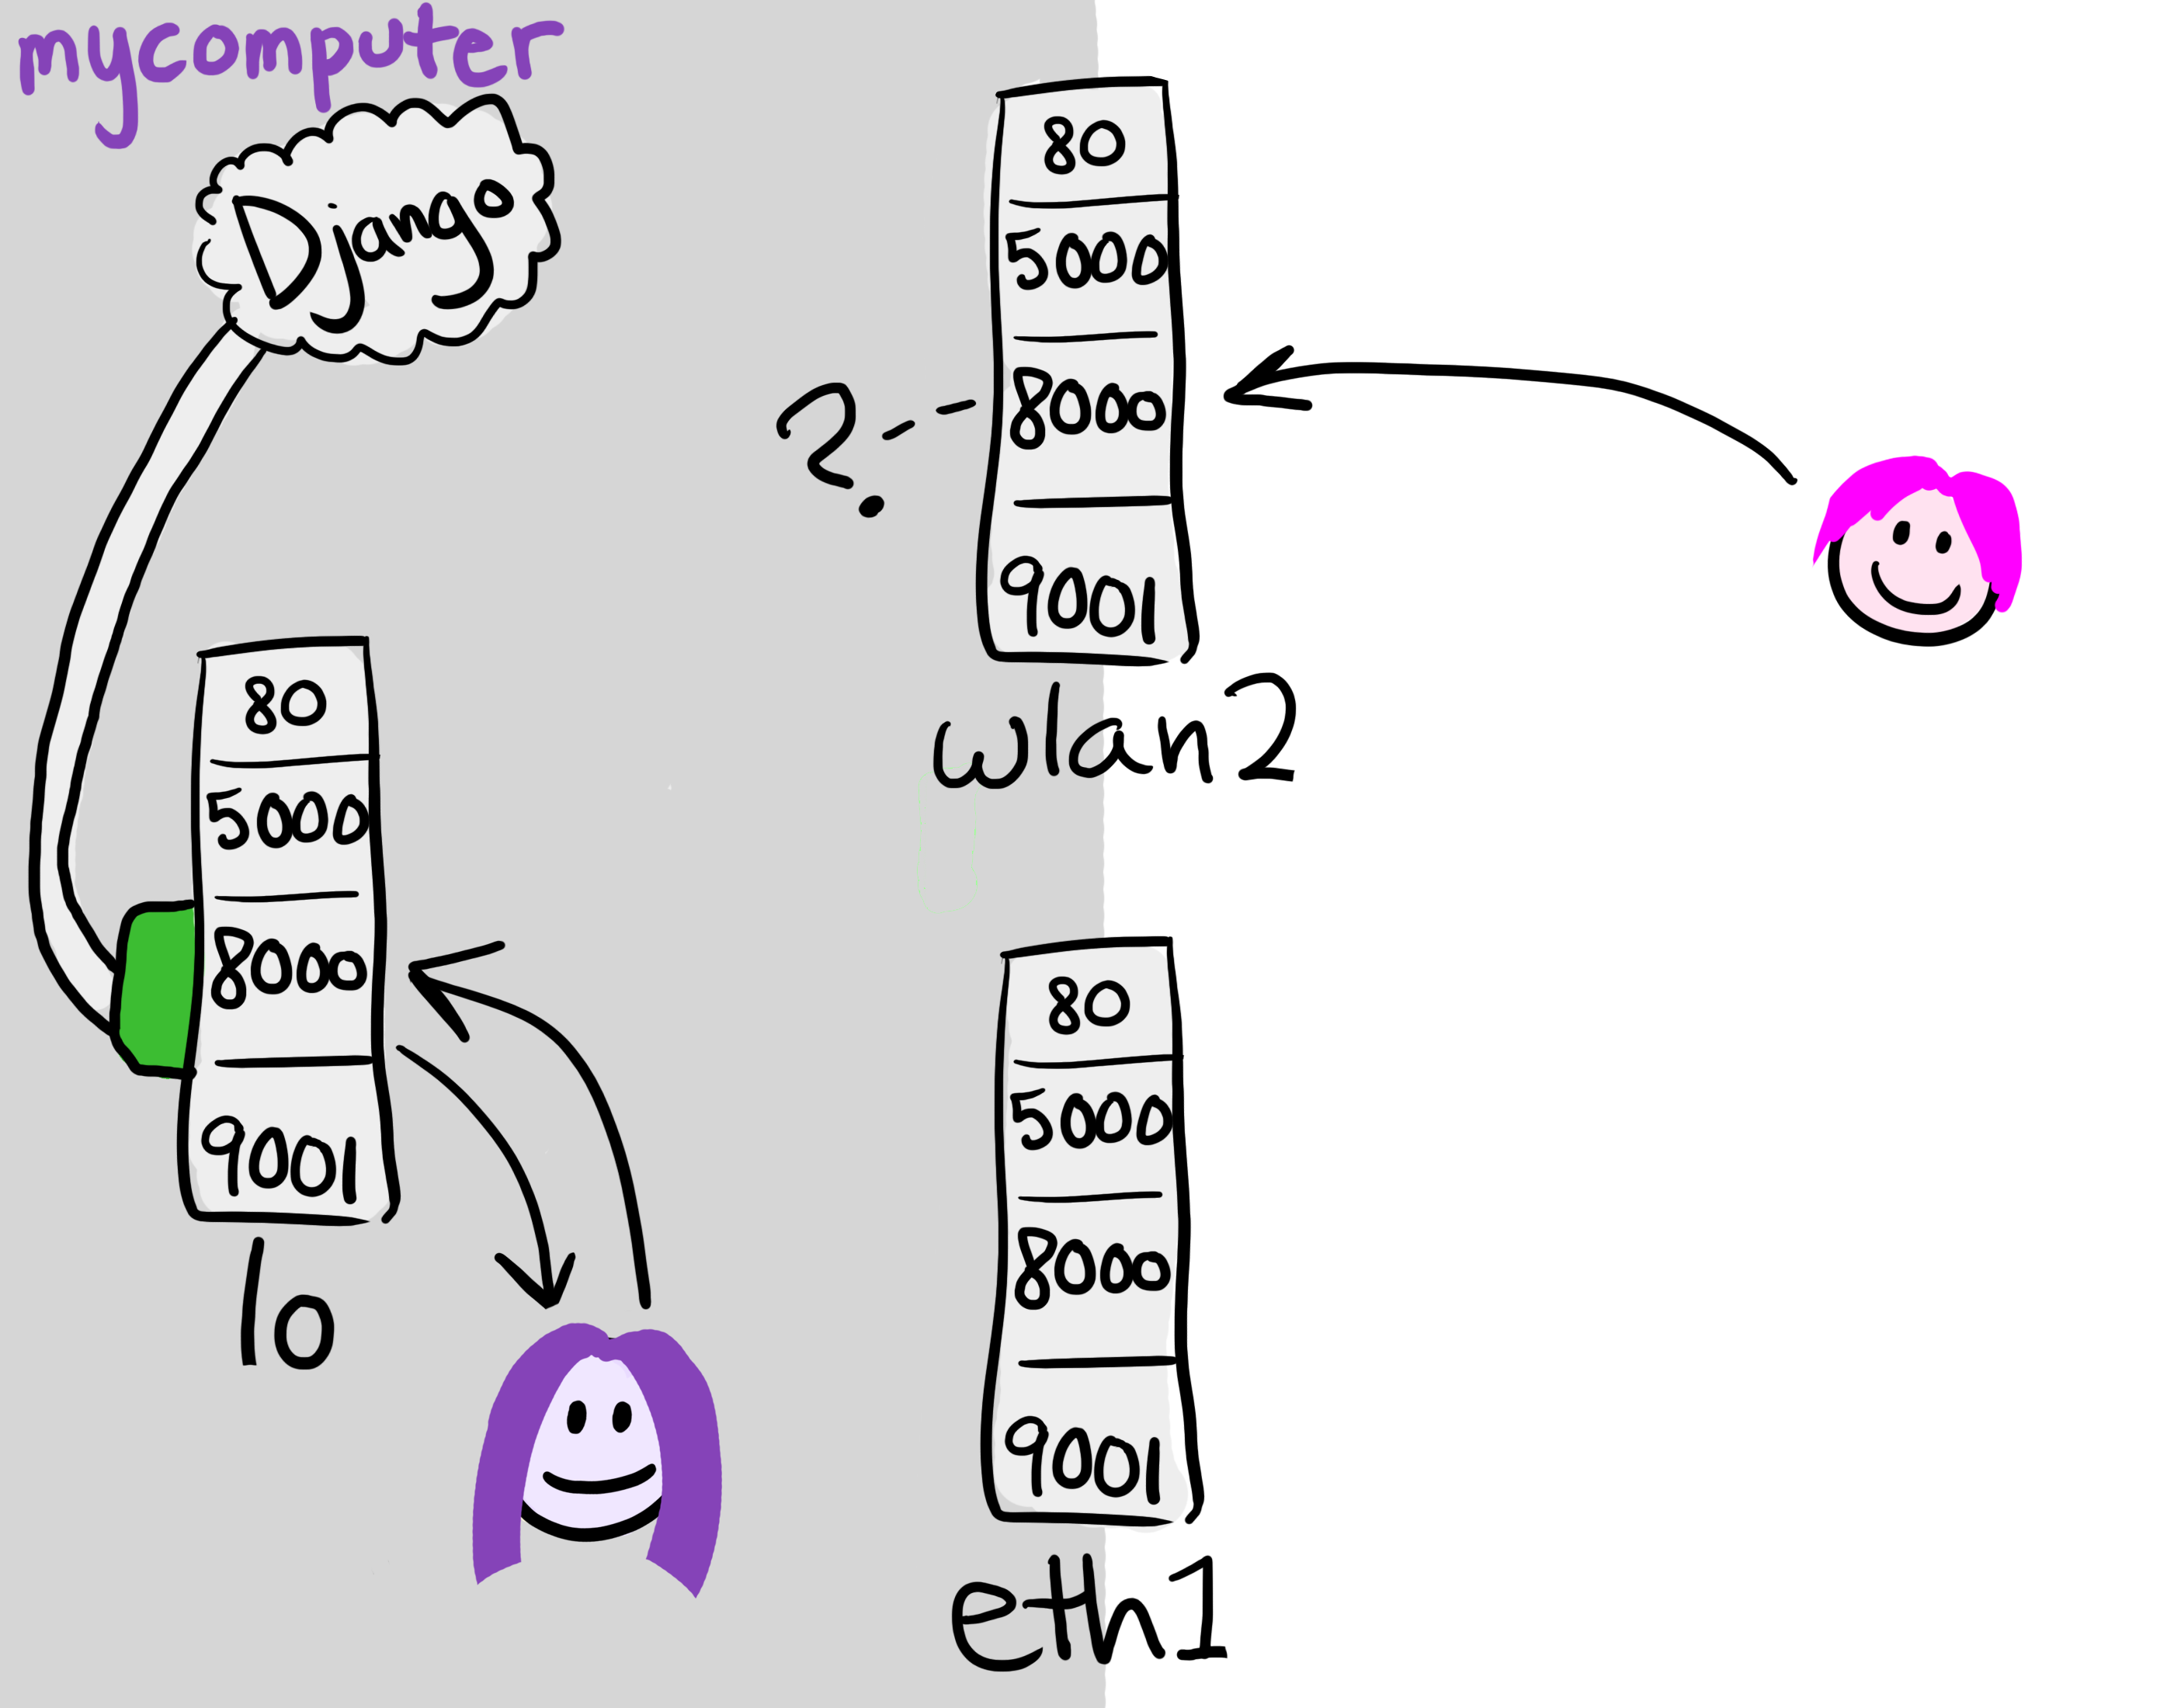 mycomputer
Django
80
5000
8000
9001
lo
?
80
5000
8000
9001
wlan2
80
5000
8000
9001
eth1